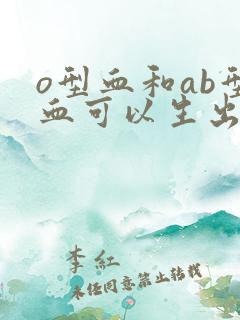 o型血和ab型
血可以生出
李红
未经同意禁止转载